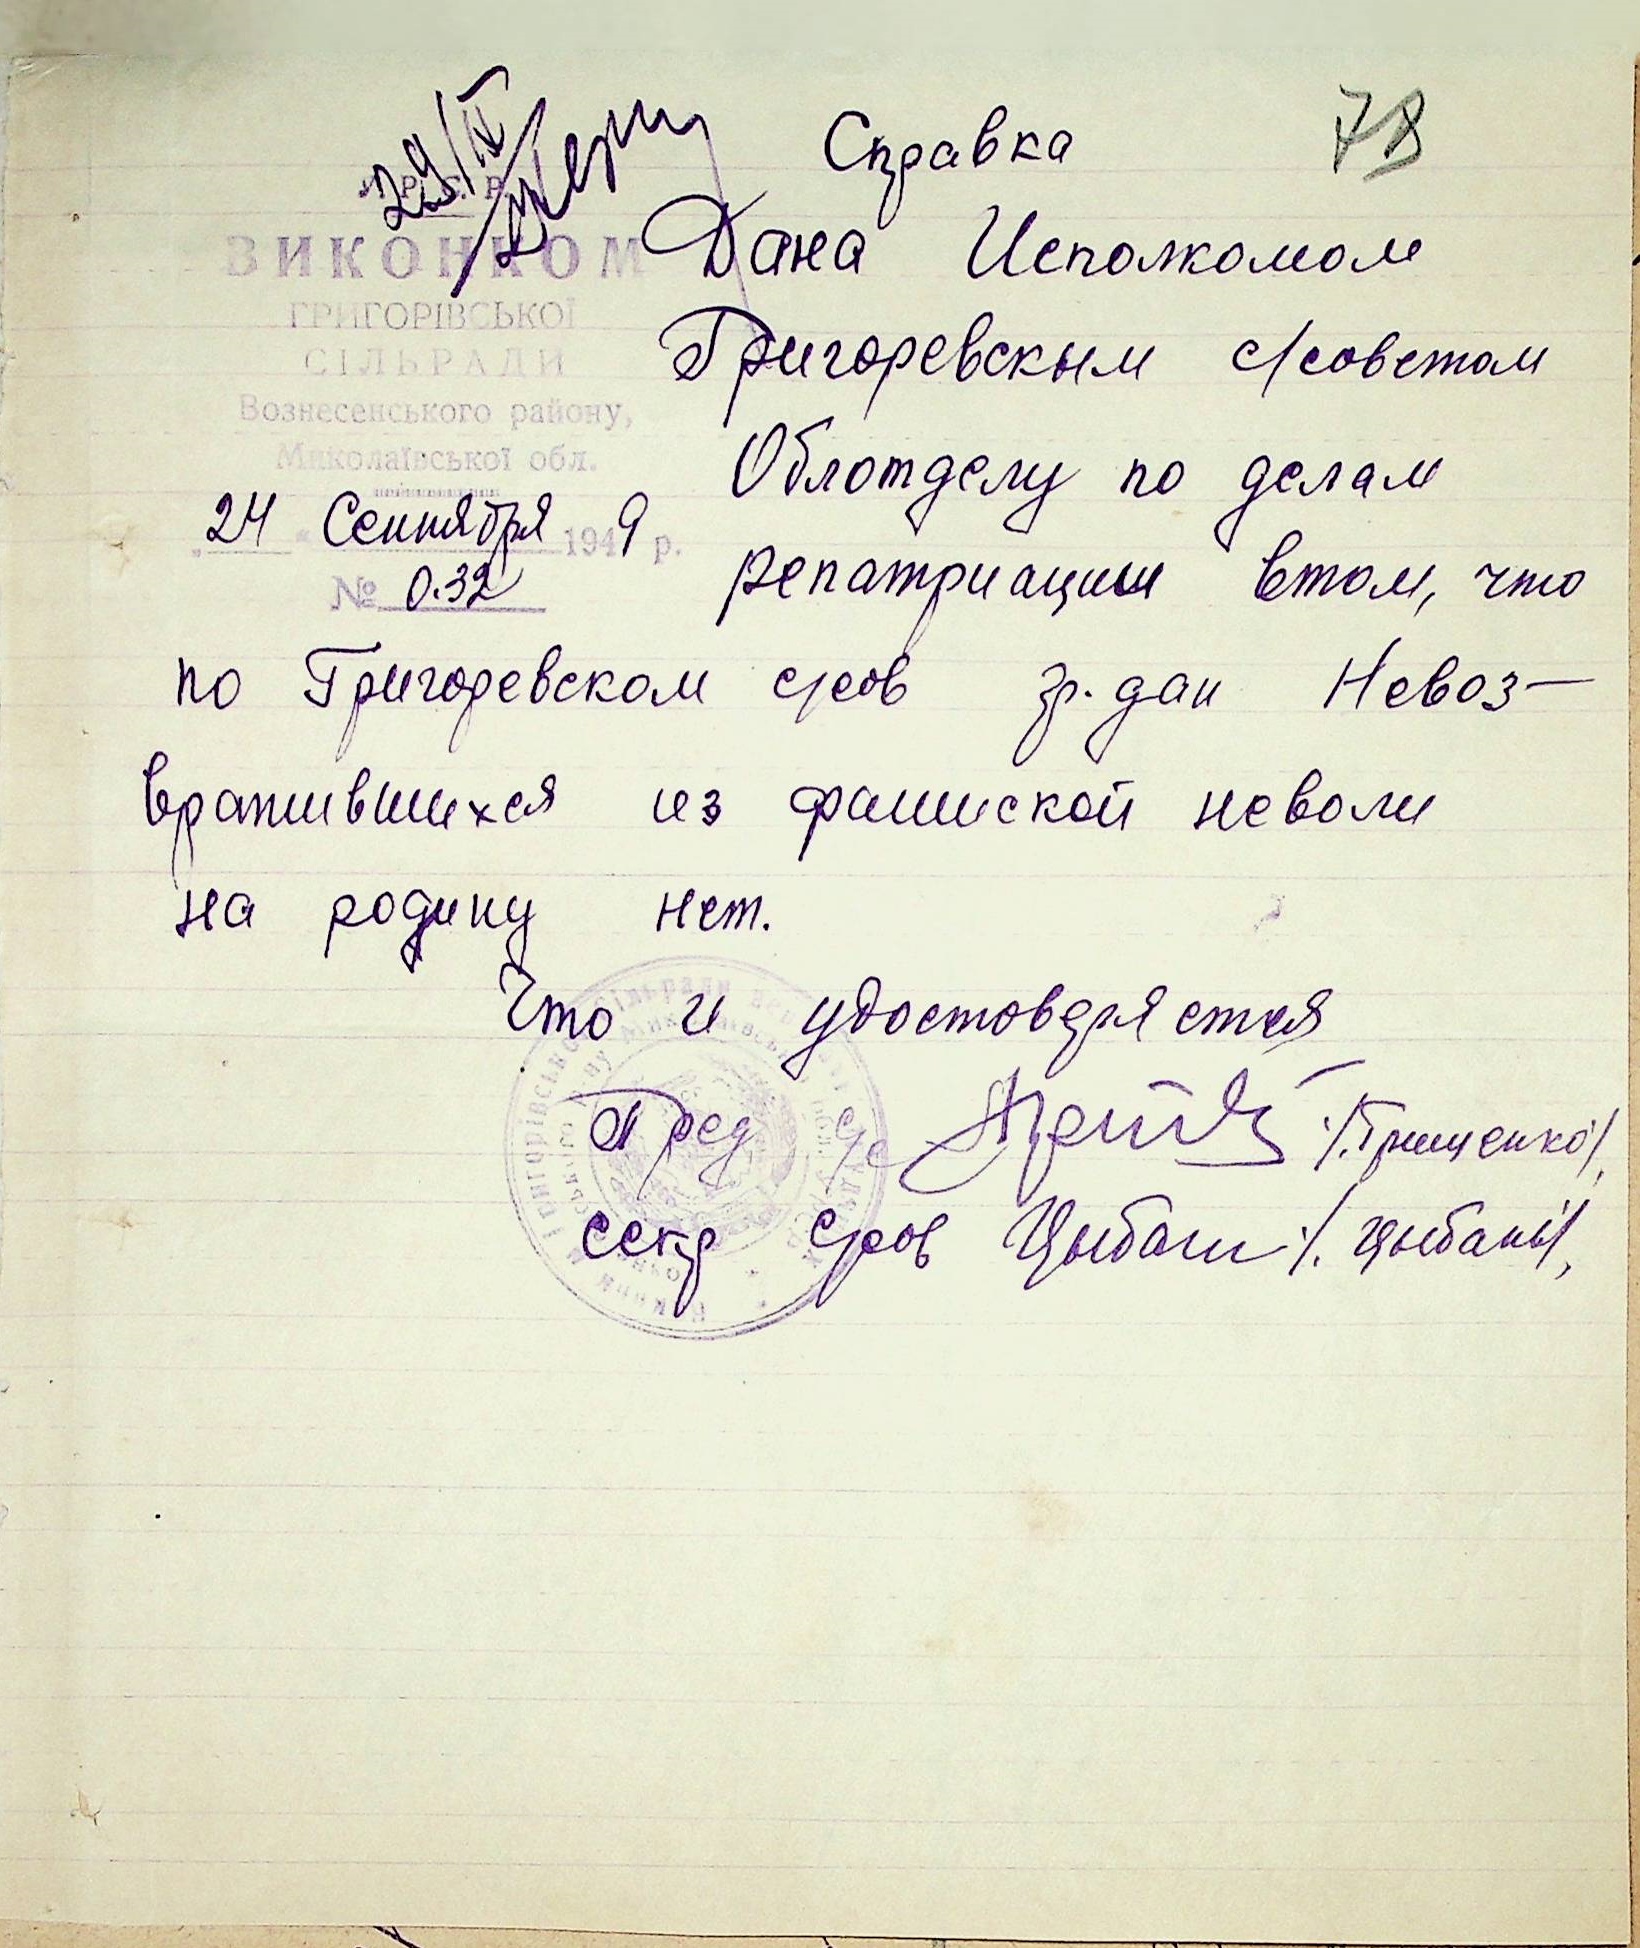 29/IV
78
Справка
У.Р.С.Р.
ВИКОНКОМ
ГРИГОРІВСЬКОЇ
СІЛЬРАДИ
Вознесенського району,
Миколаївської обл.
„24" Сентября 1949 р.
№ 0.32
Дана Исполкомом
Григоревским с/советом
Облотделу по делам
репатриации втом, что
по Григоревском с/сов гр-дан Невоз-
вратившихся из фашиской неволи
на родину нет.
Что и удостоверяется
Пред с/с /.Грищенко/.
секр с/сов Цыбань /. Цыбань/.